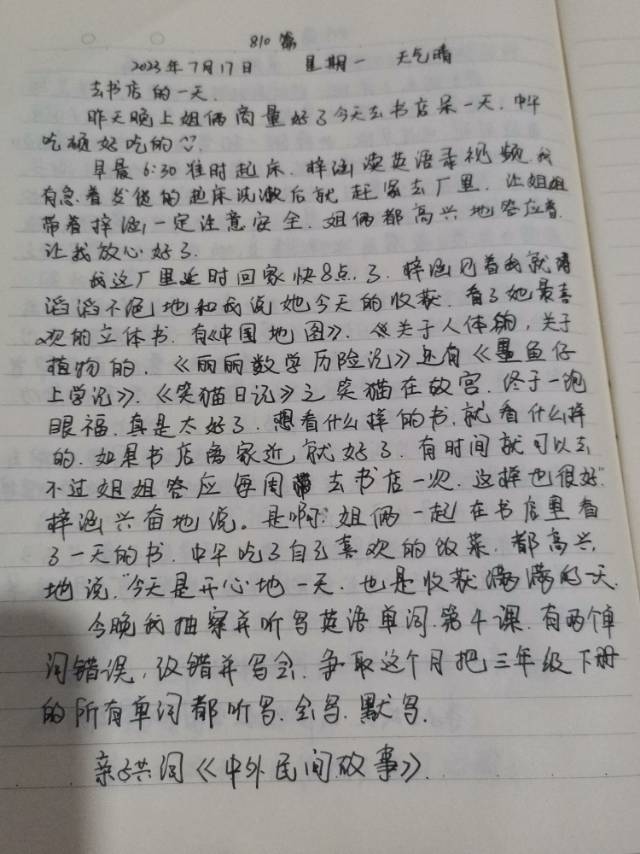 810篇
2023年7月17日 星期一 天气晴
去书店的一天.
昨天晚上姐俩商量好了今天去书店呆一天.中午
吃顿好吃的
早晨6:30准时起床.梓涵读英语录视频.我
有急着发货的起床洗漱后就赶紧去厂里.让姐姐
带着梓涵,一定注意安全.姐俩都高兴地答应着.
让我放心好了.
我这厂里延时回家快8点了.梓涵见着我就
滔滔不绝地和我说她今天的收获.看了她最喜
欢的立体书.有《中国地图》.《关于人体的,关于
植物的,《丽丽数学历险记》还有《墨鱼仔
上学记》.《笑猫日记》之笑猫在故宫.终于一饱
眼福.真是太好了.想看什么样的书,就看什么样
的.如果书店离家近就好了.有时间就可以去.
不过姐姐答应每周带去书店一次.这样也很好"
梓涵兴奋地说。是啊?姐俩一起在书店里看
了一天的书.中午吃了自己喜欢的饭菜.都高兴
地说,"今天是开心地一天.也是收获满满的一天.
今晚我抽察并听写英语单词.第4课.有两个单
词错误,改错并写会.争取这个月把三年级下册
的所有单词都听写.会写.默写.
亲子共词《中外民间故事》.